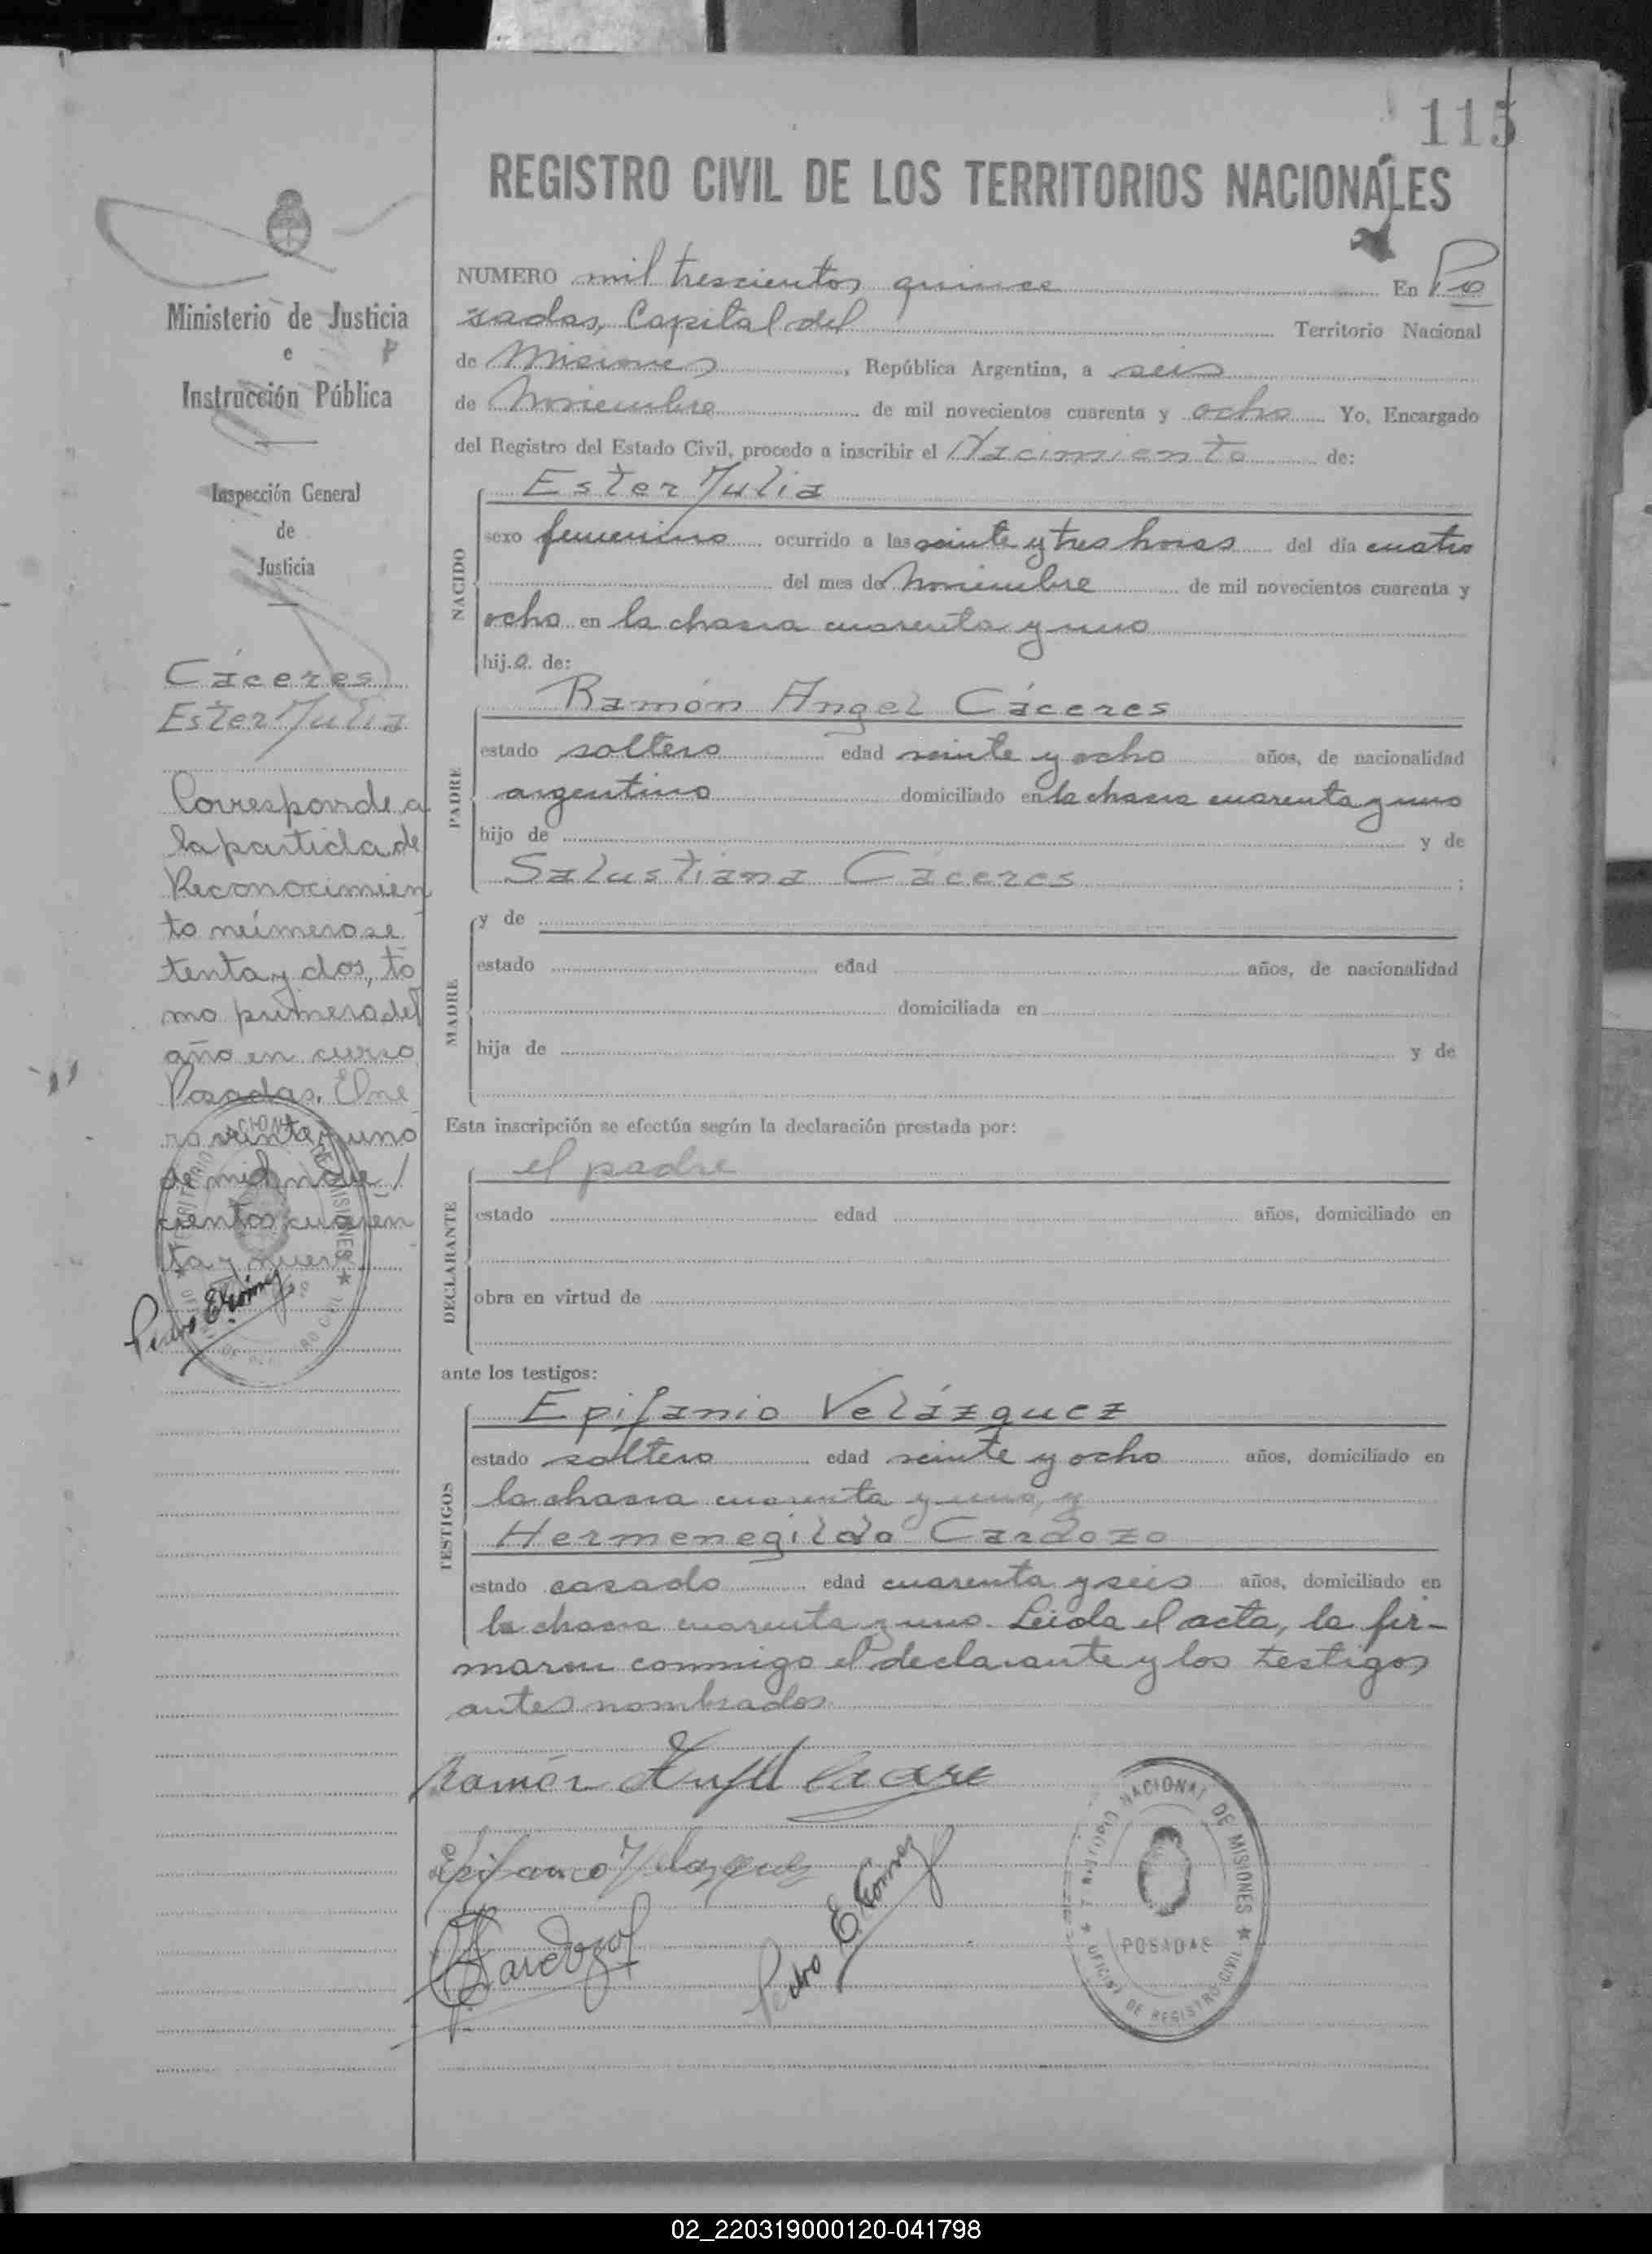 115
REGISTRO CIVIL DE LOS TERRITORIOS NACIONALES
Ministerio de Justicia
e
Instrucción Pública
Inspección General
de
Justicia
Cáceres
Ester Julia
Corresponde a
la partida de
Reconocimien
to número se
tenta y dos, to
mo primero del
año en curso
Posadas, Ene
ro veinte y uno
de mil nove /
cientos cuaren
ta y nueve
Pedro E. Gómez
NUMERO mil trescientos quince En Po
sadas, Capital del Territorio Nacional
de Misiones, República Argentina, a seis
de Noviembre de mil novecientos cuarenta y ocho Yo, Encargado
del Registro del Estado Civil, procedo a inscribir el Nacimiento de:
NACIDO
Ester Julia
sexo femenino ocurrido a las veinte y tres horas del día cuatro
del mes de Noviembre de mil novecientos cuarenta y
ocho en la chacra cuarenta y uno
hija de:
PADRE
Ramón Angel Cáceres
estado soltero edad veinte y ocho años, de nacionalidad
argentino domiciliado en la chacra cuarenta y uno
hijo de y de
Salustiana Cáceres ;
MADRE
y de
estado edad años, de nacionalidad
domiciliada en
hija de y de
Esta inscripción se efectúa según la declaración prestada por:
DECLARANTE
el padre
estado edad años, domiciliado en
obra en virtud de
ante los testigos:
TESTIGOS
Epifanio Velázquez
estado soltero edad veinte y ocho años, domiciliado en
la chacra cuarenta y uno, y
Hermenegildo Cardozo
estado casado edad cuarenta y seis años, domiciliado en
la chacra cuarenta y uno. Leida el acta, la fir-
maron conmigo el declarante y los testigos
antes nombrados
Ramón Angel Cacere
Epifanio Velazquez
Cardozo
Pedro E. Gómez
TERRITORIO NACIONAL DE MISIONES
POSADAS
OFICINA DE REGISTRO CIVIL
02_220319000120-041798